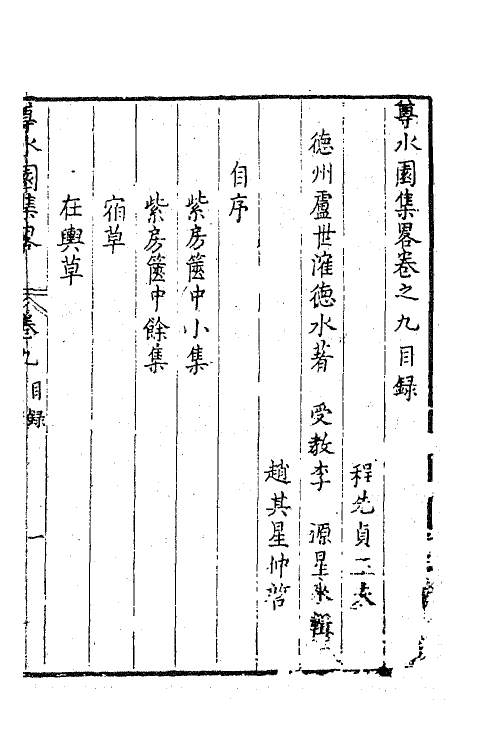 尊水園集畧卷之九目録
程先貞正夫
德州盧世㴶德水著　受教李　源星來輯
趙其星仲啓
自序
紫房篋中小集
紫房篋中餘集
宿草
在輿草
尊水園集畧　卷九目録　一